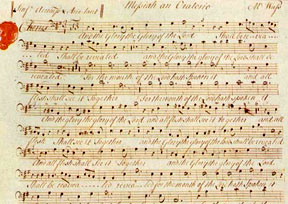 Messiah an Oratorio
Chorus
And the Glory the Glory of the Lord Shall be re
Shall be revealed and the Glory of the Lord shall be
revealed For the mouth of the Lord hath Spoken it and all
flesh shall see it Together for the mouth of the Lord hath spoken it
and the glory the glory of the Lord and all flesh shall see it together and all
flesh Shall see it Together and the Glory the glory of the Lord shall be revealed
And all flesh shall see it together and the Glory the glory of the Lord
Shall be revea led revea led for the mouth of the Lord hath Spoken it